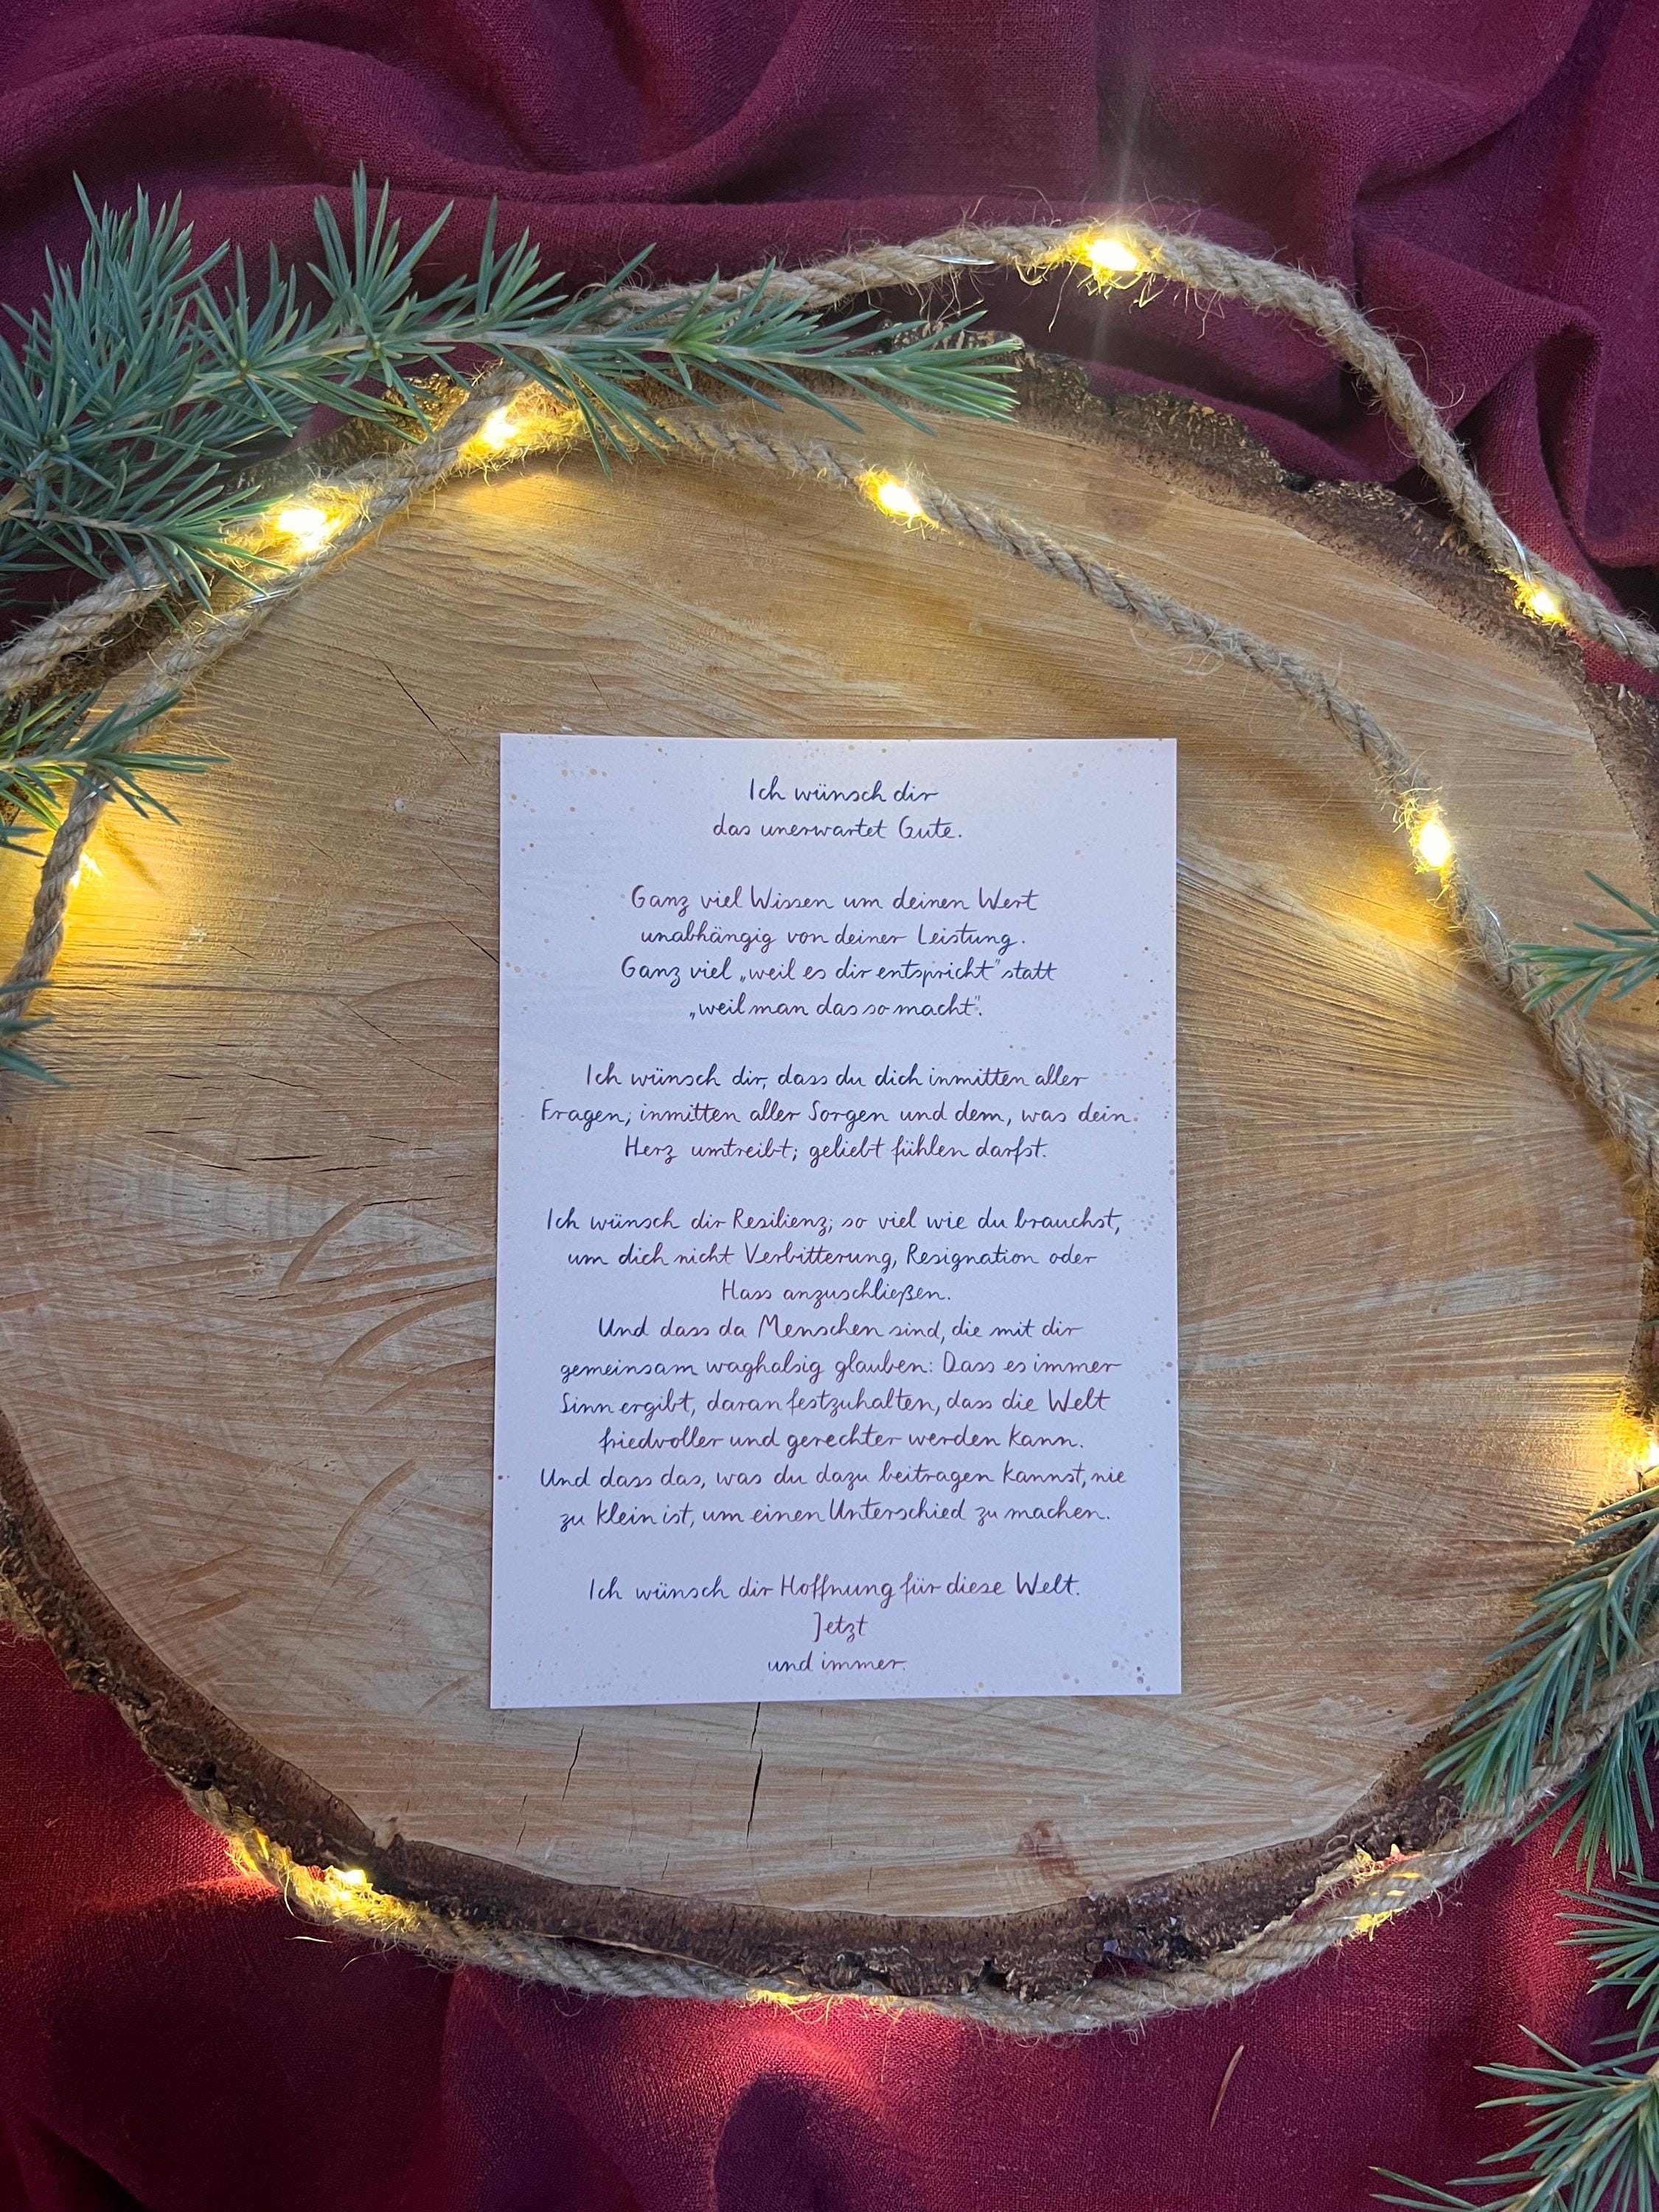 Ich wünsch dir
das unerwartet Gute.
Ganz viel Wissen um deinen Wert
unabhängig von deiner Leistung.
Ganz viel „weil es dir entspricht" statt
„weil man das so macht".
Ich wünsch dir, dass du dich inmitten aller
Fragen, inmitten aller Sorgen und dem, was dein
Herz umtreibt, geliebt fühlen darfst.
Ich wünsch dir Resilienz, so viel wie du brauchst,
um dich nicht Verbitterung, Resignation oder
Hass anzuschließen.
Und dass da Menschen sind, die mit dir
gemeinsam waghalsig glauben: Dass es immer
Sinn ergibt, daran festzuhalten, dass die Welt
friedvoller und gerechter werden kann.
Und dass das, was du dazu beitragen kannst, nie
zu klein ist, um einen Unterschied zu machen.
Ich wünsch dir Hoffnung für diese Welt.
Jetzt
und immer.